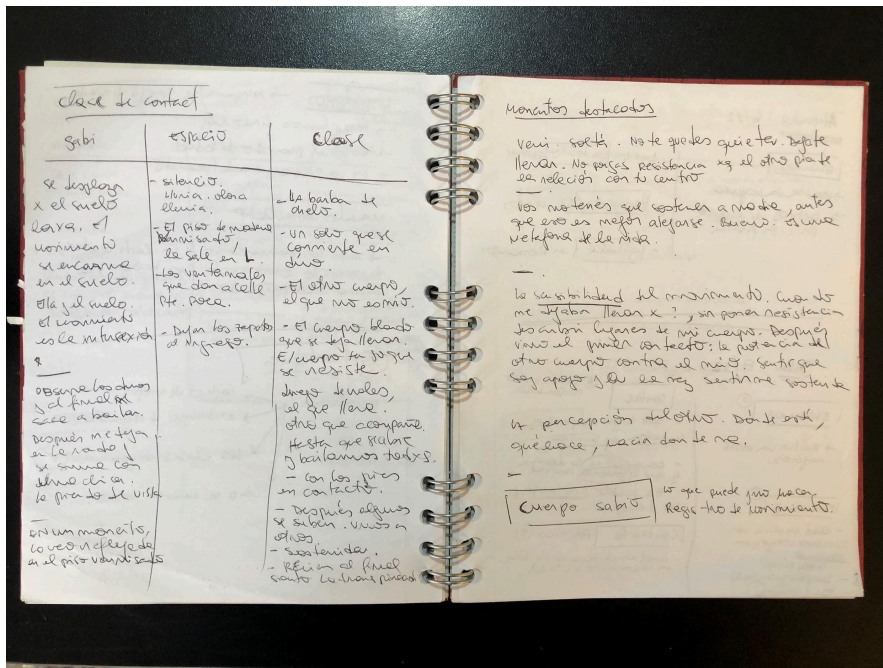 clase de contact
Gabi
se desplaza
x el suelo
El
movimiento
se encarna
en el suelo.
Ella y el suelo.
El movimiento
es la intersección
Observa los dúos
y al final me
saca a bailar.
Después me deja
en la ronda y
se suma con
otra chica.
la pierdo de vista
En un momento,
la veo reflejada
en el piso varnisado
Espacio
- silencio.
lluvia. olora
lluvia.
- El piso de madera
barnisado,
la sala en L.
- Los ventanales
que dan a calle
Pte. Roca.
- Dejan los zapatos
al ingreso.
Clase
- La barba de
chelo.
- un solo que se
convierte en
dúo.
- El otro cuerpo,
el que no es mío.
- El cuerpo blando
que se deja llevar.
El cuerpo que
se resiste.
Juego de roles,
el que lleva.
otro que acompaña.
Hasta que
y bailamos todxs.
- Con los pies
en contacto.
- Después algunos
se suben. Unos a
otros.
- Sostenida.
- Recién al final
siento la transpiración
Momentos destacados
Vení. Soltá. No te quedes quieta. Dejate
llevar. No pongas resistencia xq el otro pierde
la relación con tu centro
Vos no tenés que sostener a nadie, antes
que eso es mejor alejarse. Bueno. Es una
metáfora de la vida.
La sensibilidad del movimiento. Cuando
me dejaba llevar x ?, sin poner resistencia
descubrí lugares de mi cuerpo. Después
vino el primer contacto: la potencia del
otro cuerpo contra el mío. Sentir que
soy apoyo y a la vez sentirme sostenida
La percepción del otro. Dónde está,
qué hace, hacia donde va.
Cuerpo sabio
lo que puede y no hacer
Registro de movimiento.